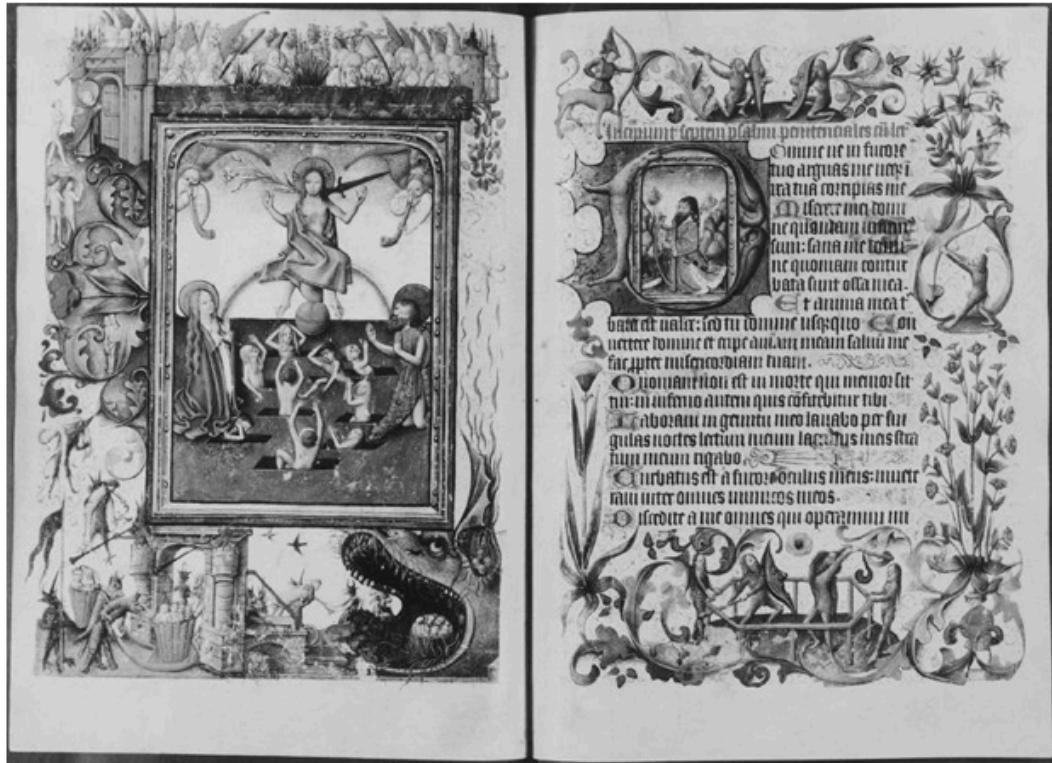 Incipiunt septem psalmi penitenciales cū le
Domine ne in furore
tuo arguas me neqȝ ī
ira tua corripias me
Miserere mei domi
ne quoniam infirm
sum: sana me domi
ne quoniam contur
bata sunt ossa mea.
Et anima mea t
bata est valde: sed tu domine usqȝquo Con
vertere domine et eripe aīam meam salvū me
fac ꝓpter misericordiam tuam.
Quoniam non est in morte qui memor sit
tui: in inferno autem quis cōfitebitur tibi
Laboravi in gemitu meo lavabo per sin
gulas noctes lectum meum lacrimis meis stra
tum meum rigabo.
Turbatus est a furore oculus meus: invete
ravi inter omnes inimicos meos.
Discedite a me omnes qui operamini ini